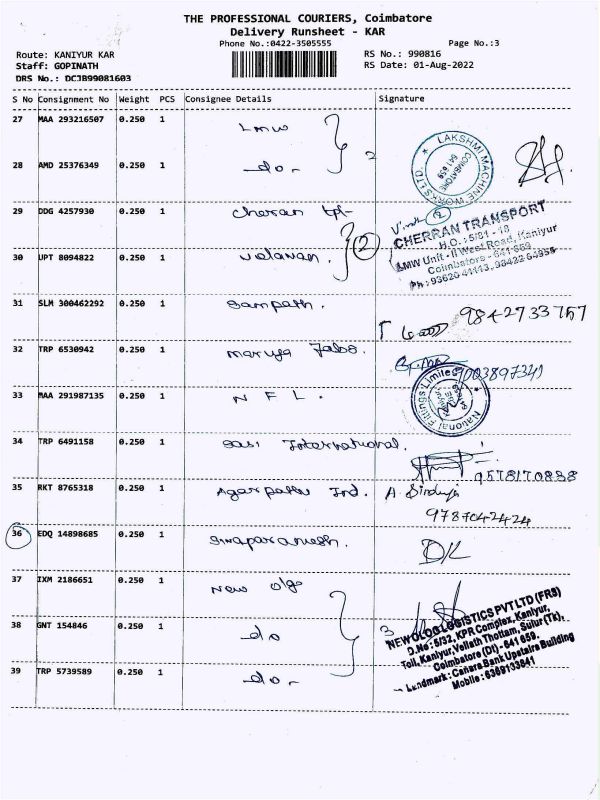 THE PROFESSIONAL COURIERS, Coimbatore
Delivery Runsheet - KAR
Phone No.:0422-3505555 Page No.:3
Route: KANIYUR KAR RS No.: 990816
Staff: GOPINATH RS Date: 01-Aug-2022
DRS No.: DCJB99081603
S No Consignment No Weight PCS Consignee Details Signature
27 MAA 293216507 0.250 1 LMW
2
LAKSHMI MACHINE WORKS LTD. COIMBATORE 641 659
28 AMD 25376349 0.250 1 do -
29 DDG 4257930 0.250 1 cherran tpt-
2
CHERRAN TRANSPORT
H.O. : 5/81 - 18
LMW Unit - II West Road, Kaniyur
Coimbatore - 641 659
Ph : 93620 41113, 98422 64955
30 UPT 8094822 0.250 1 velavan.
2
31 SLM 300462292 0.250 1 Sampath.
9842733757
32 TRP 6530942 0.250 1
33 MAA 291987135 0.250 1 N F L.
National Fittings Limited
34 TRP 6491158 0.250 1 Sasi International.
9578170838
35 RKT 8765318 0.250 1 Ind. A Sinduja
9787042424
36 EDQ 14898685 0.250 1
37 IXM 2186651 0.250 1 New olgo
3
NEW OLGO LOGISTICS PVT LTD (FRS)
D.No : 5/32, KPR Complex, Kaniyur,
Toll, Kaniyur, Vellath Thottam, Sulur (Tk),
Coimbatore (Dt) - 641 659.
Landmark : Canara Bank Upstaire Building
Mobile : 6369133841
38 GNT 154846 0.250 1 do
39 TRP 5739589 0.250 1 do -